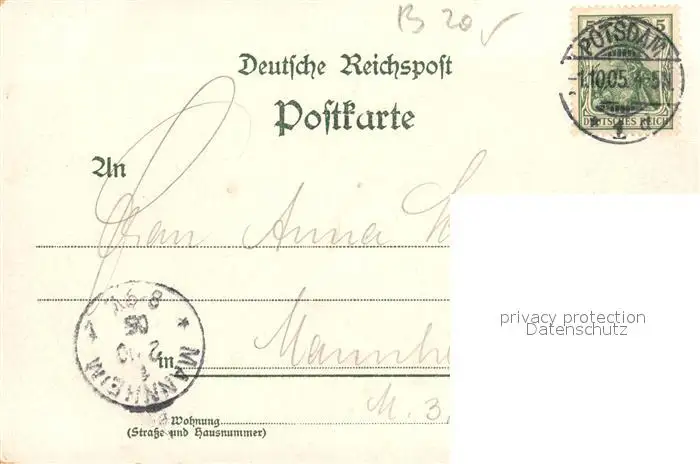 B 20
Deutsche Reichspost
Postkarte
5 5
POTSDAM
1.10.05. 4-5N
1
DEUTSCHES REICH
An
Frau Anna
privacy protection
Datenschutz
MANNHEIM 1
2 10
05
8-9V
in
Mannhe
M. 3,
Wohnung
(Straße und Hausnummer)